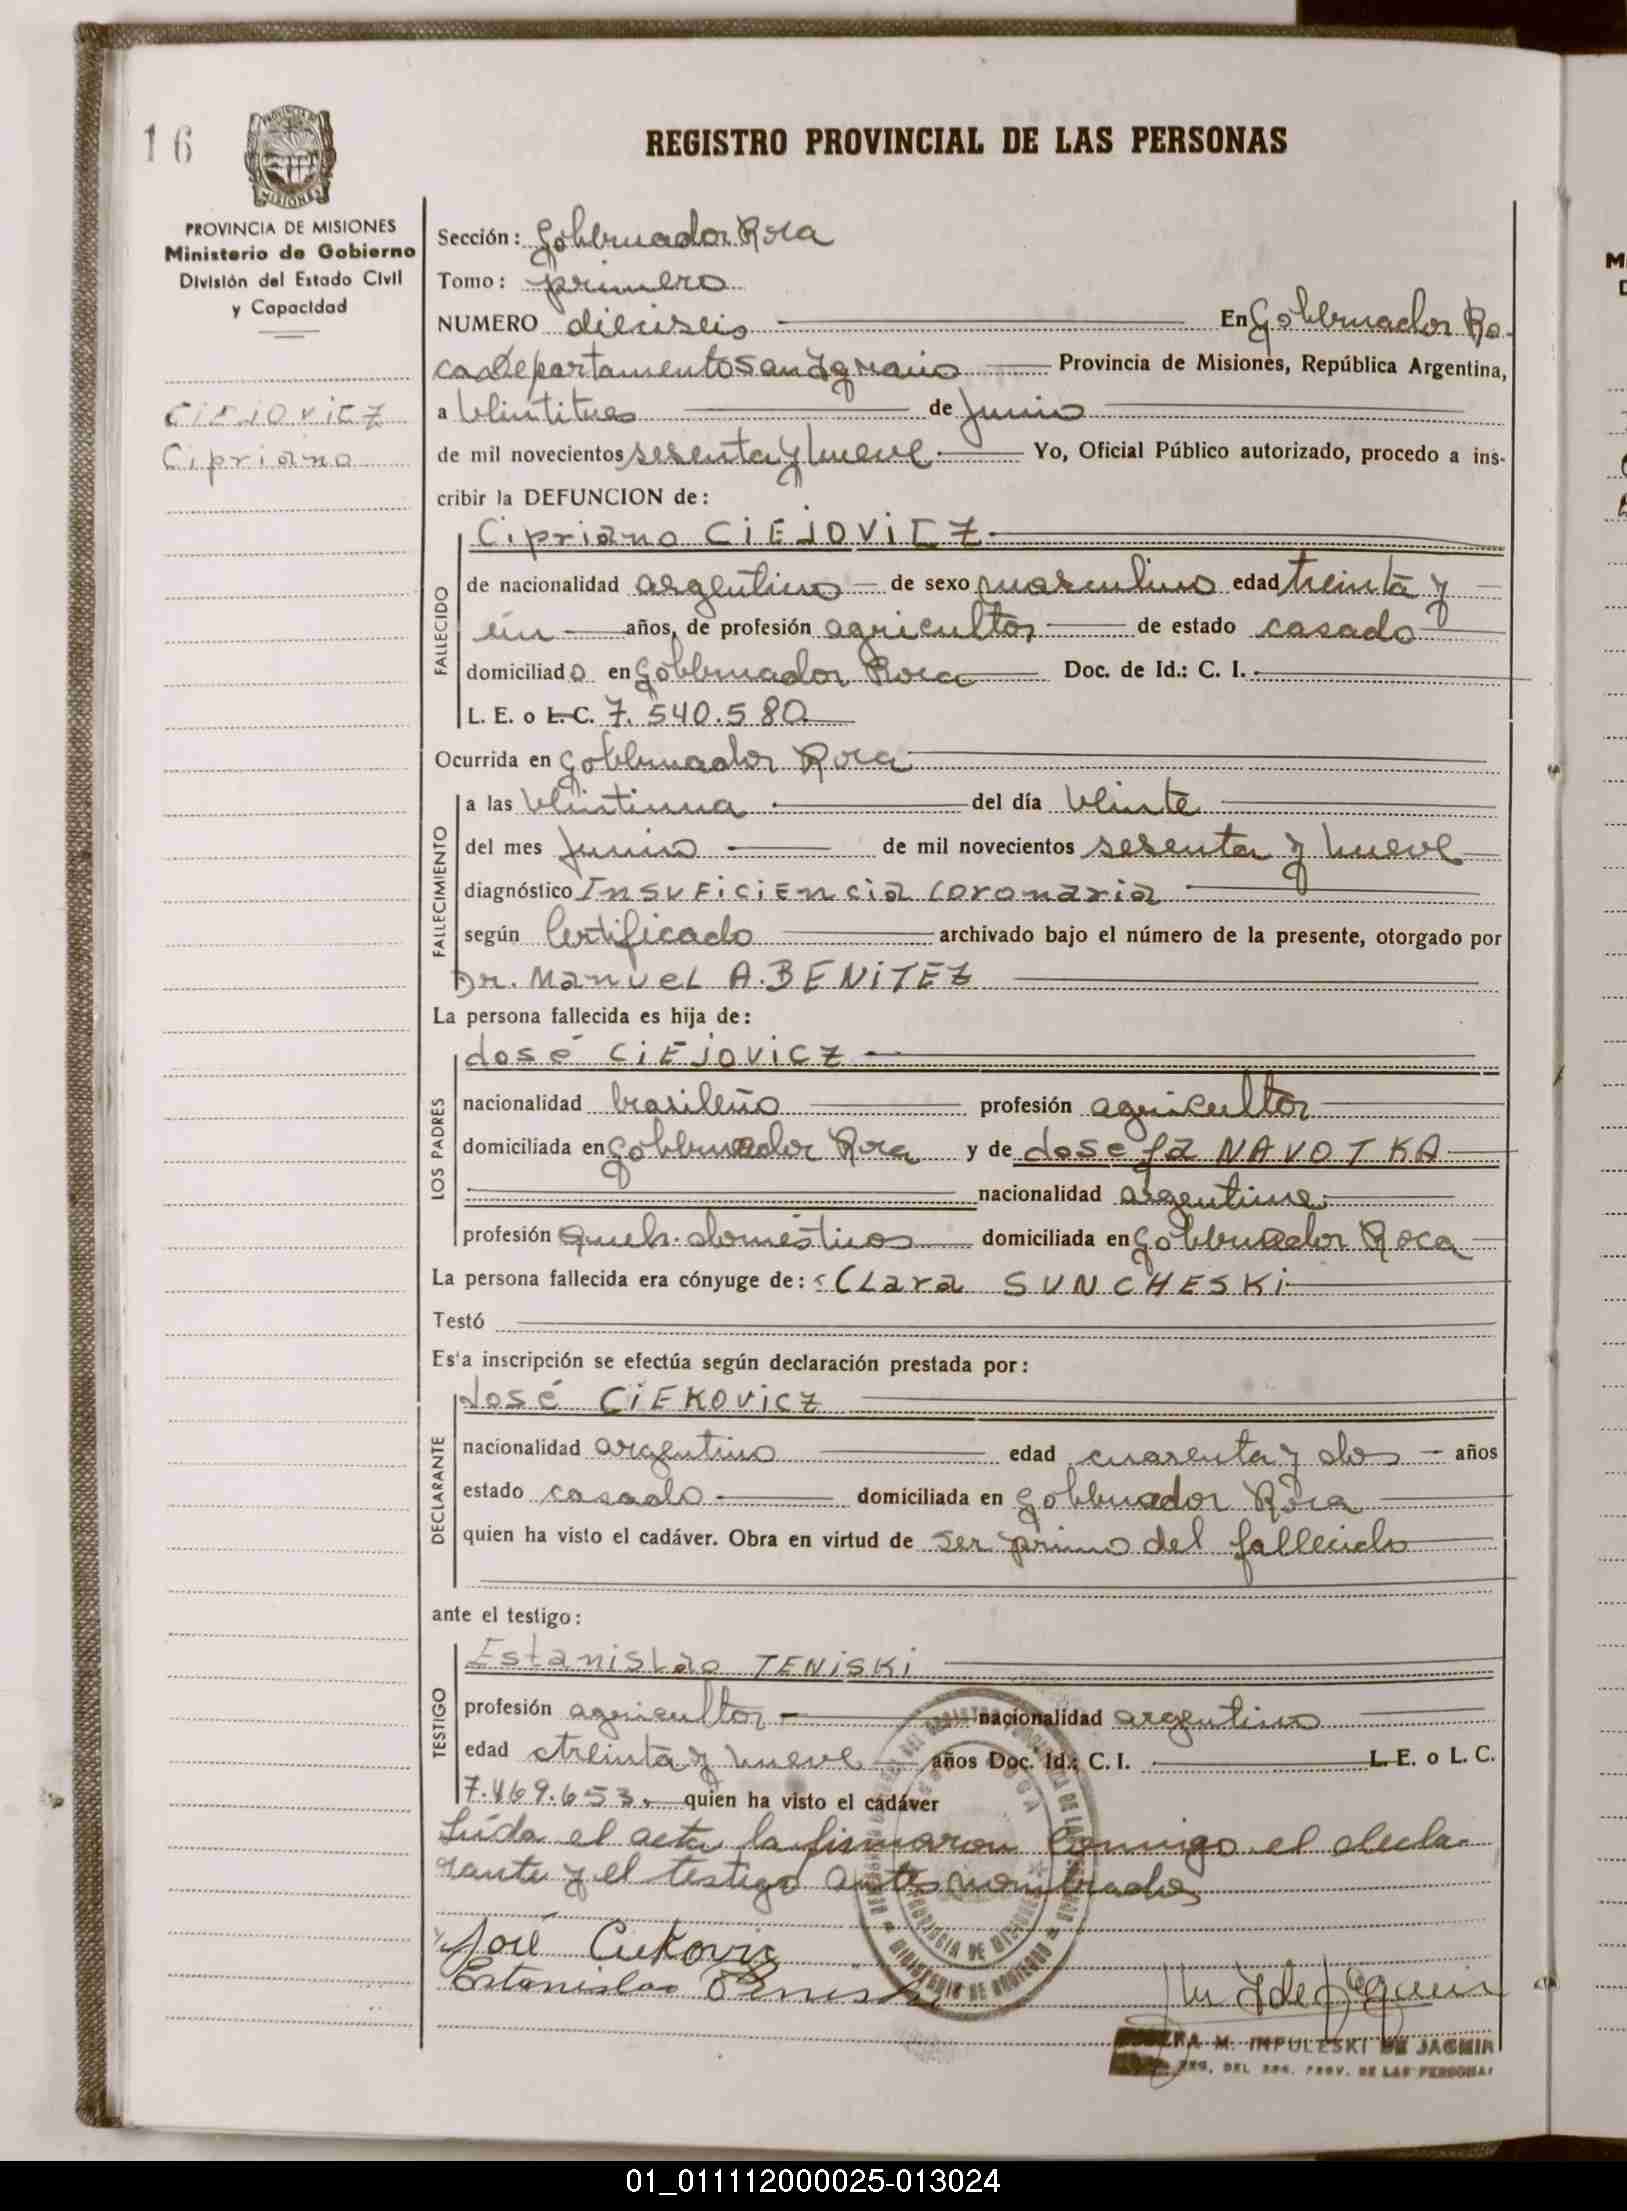 16
REGISTRO PROVINCIAL DE LAS PERSONAS
MISIONES
PROVINCIA DE MISIONES
Ministerio de Gobierno
División del Estado Civil
y Capacidad
CIEJOVICZ
Cipriano
Sección: Gobernador Roca
Tomo: primero
NUMERO dieciseis En Gobernador Ro-
ca Departamento San Ignacio Provincia de Misiones, República Argentina,
a veintitres de Junio
de mil novecientos sesenta y nueve Yo, Oficial Público autorizado, procedo a ins-
cribir la DEFUNCION de:
Cipriano CIEJOVICZ
FALLECIDO
de nacionalidad argentino de sexo masculino edad treinta y
un años, de profesión agricultor de estado casado
domiciliado en Gobernador Roca Doc. de Id.: C. I.
L. E. o L. C. 7.540.580
Ocurrida en Gobernador Roca
FALLECIMIENTO
a las veintiuna del día veinte
del mes Junio de mil novecientos sesenta y nueve
diagnóstico Insuficiencia coronaria
según Certificado archivado bajo el número de la presente, otorgado por
Dr. Manuel A. BENITEZ
La persona fallecida es hija de:
LOS PADRES
José CIEJOVICZ
nacionalidad brasileño profesión agricultor
domiciliada en Gobernador Roca y de Josefa NAVOTKA
nacionalidad argentina
profesión queh. domésticos domiciliada en Gobernador Roca
La persona fallecida era cónyuge de: Clara SUNCHESKI
Testó
Esta inscripción se efectúa según declaración prestada por:
DECLARANTE
José CIEKOVICZ
nacionalidad argentino edad cuarenta y dos años
estado casado domiciliada en Gobernador Roca
quien ha visto el cadáver. Obra en virtud de ser primo del fallecido
ante el testigo:
TESTIGO
Estanislao TENISKI
profesión agricultor nacionalidad argentino
edad treinta y nueve años Doc. Id.: C. I. L. E. o L. C.
7.469.653. quien ha visto el cadáver
Leída el acta la firmaron conmigo el decla-
rante y el testigo antes nombrados
José Ciekovicz
Estanislao Teniski
M. INPULESKI DE JACMIN
REG. DEL REG. PROV. DE LAS PERSONAS
01_011112000025-013024